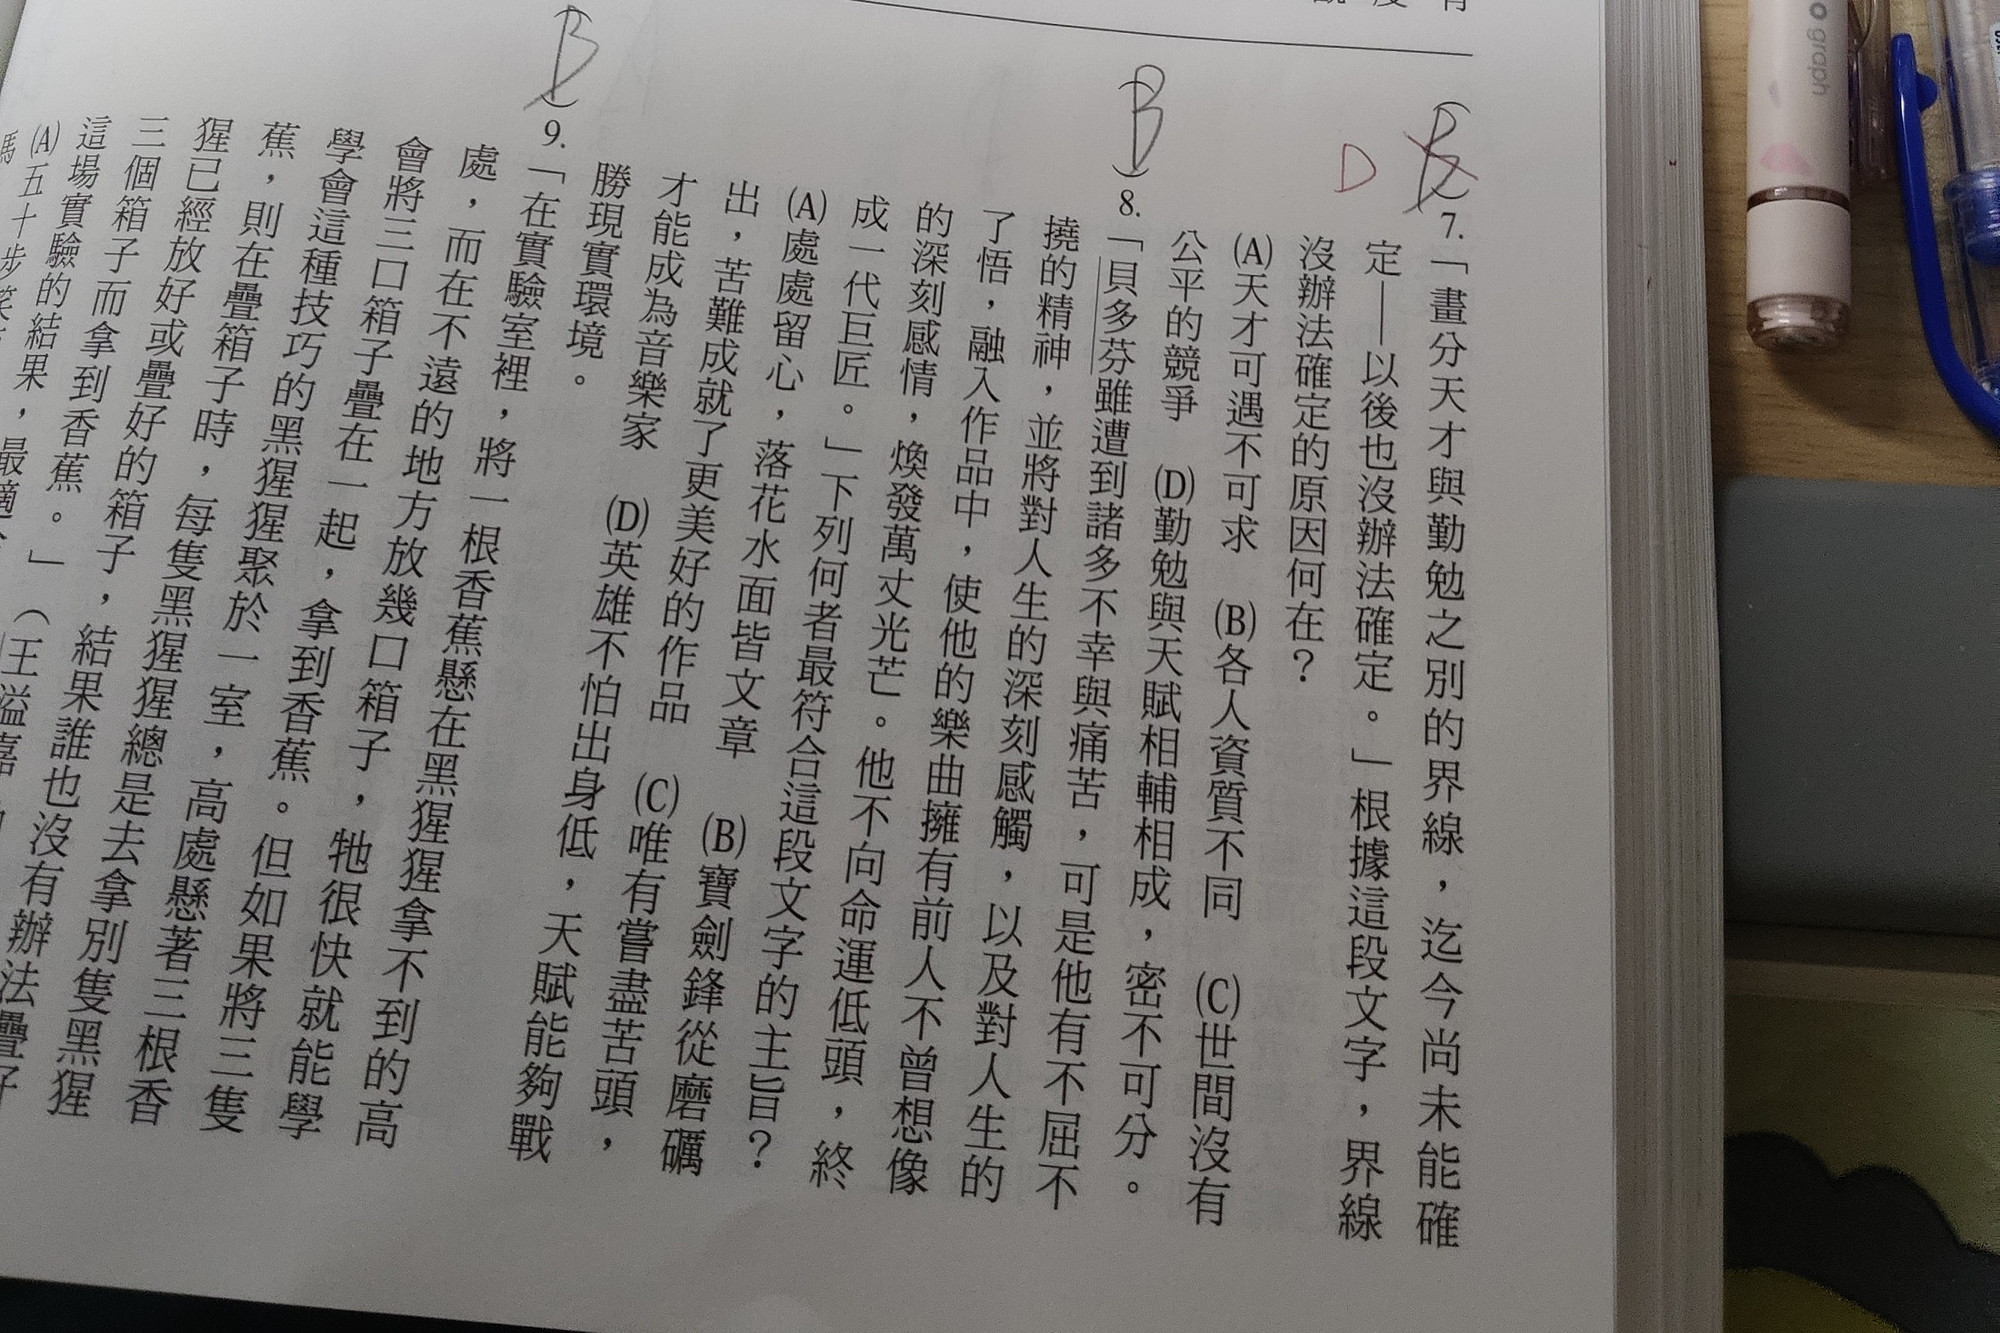 B
D
7.「畫分天才與勤勉之別的界線，迄今尚未能確
定——以後也沒辦法確定。」根據這段文字，界線
沒辦法確定的原因何在？
(A)天才可遇不可求　(B)各人資質不同　(C)世間沒有
公平的競爭　(D)勤勉與天賦相輔相成，密不可分。
B
8.「貝多芬雖遭到諸多不幸與痛苦，可是他有不屈不
撓的精神，並將對人生的深刻感觸，以及對人生的
了悟，融入作品中，使他的樂曲擁有前人不曾想像
的深刻感情，煥發萬丈光芒。他不向命運低頭，終
成一代巨匠。」下列何者最符合這段文字的主旨？
(A)處處留心，落花水面皆文章　(B)寶劍鋒從磨礪
出，苦難成就了更美好的作品　(C)唯有嘗盡苦頭，
才能成為音樂家　(D)英雄不怕出身低，天賦能夠戰
勝現實環境。
B
9.「在實驗室裡，將一根香蕉懸在黑猩猩拿不到的高
處，而在不遠的地方放幾口箱子，牠很快就能學
會將三口箱子疊在一起，拿到香蕉。但如果將三隻
學會這種技巧的黑猩猩聚於一室，高處懸著三根香
蕉，則在疊箱子時，每隻黑猩猩總是去拿別隻黑猩
猩已經放好或疊好的箱子，結果誰也沒有辦法疊好
三個箱子而拿到香蕉。」（王溢嘉
這場實驗的結果，最適
(A)五十步笑
graph